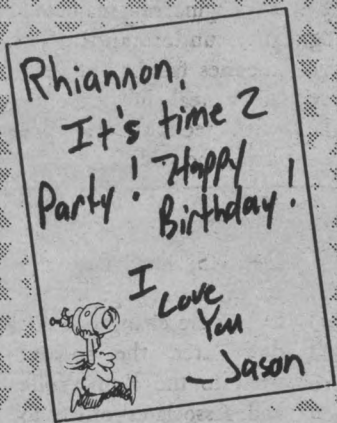 Rhiannon,
It's time 2
Party! Happy
Birthday!
I
Love
You
- Jason